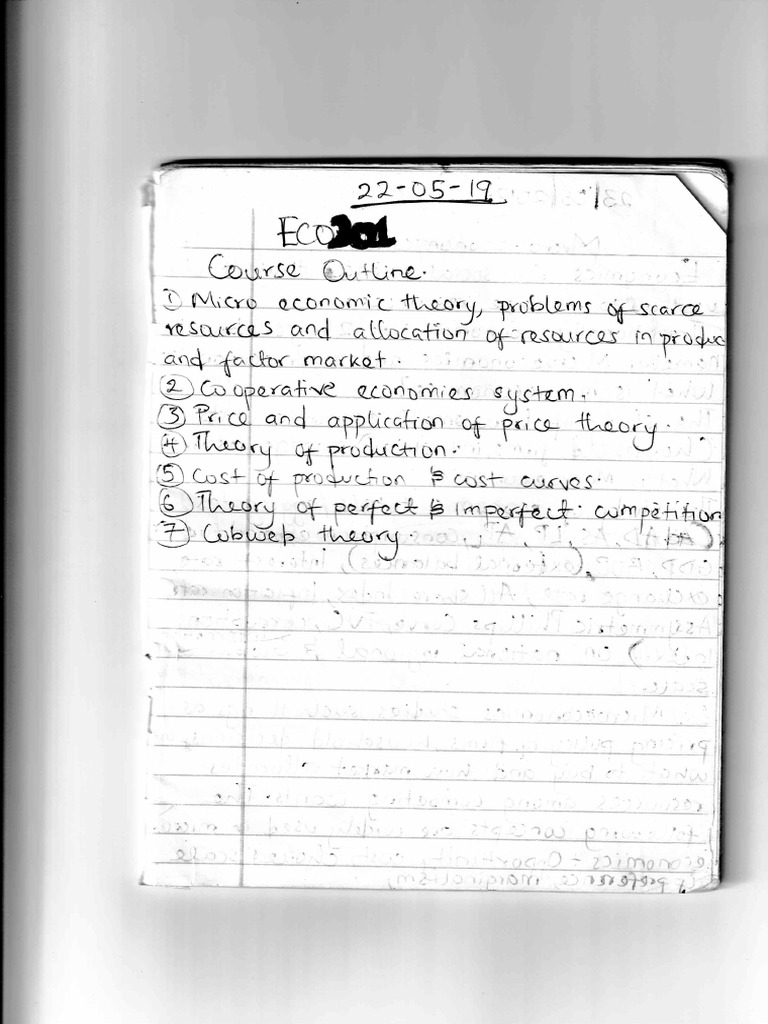 22-05-19
ECO201
Course Outline.
① Micro economic theory, problems of scarce
resources and allocation of resources in produc
and factor market.
② Cooperative economies system.
③ Price and application of price theory.
④ Theory of production.
⑤ Cost of production & cost curves.
⑥ Theory of perfect & imperfect competition
⑦ Cobweb theory